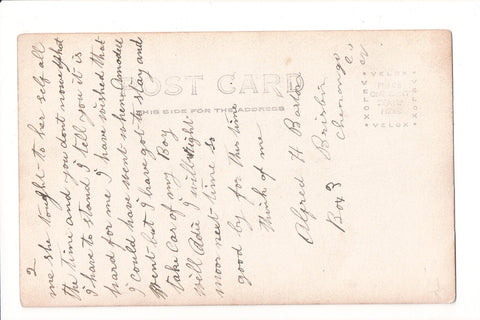 2
me she tought to her self all
the time and you dont now what
i have to stand I tell you it is
hard for me I have wished that
I could have went when Amodell
Went but I have got to stay and
take Car of my Boy
well Adie I will right
moor next time so
good by for this time
think of me
Alfred H Barlow
Brisbin
Box 3 Chenango
Co
NY
POST CARD
THIS SIDE FOR THE ADDRESS
VELOX
VELOX
VELOX
VELOX
PLACE
STAMP
HERE